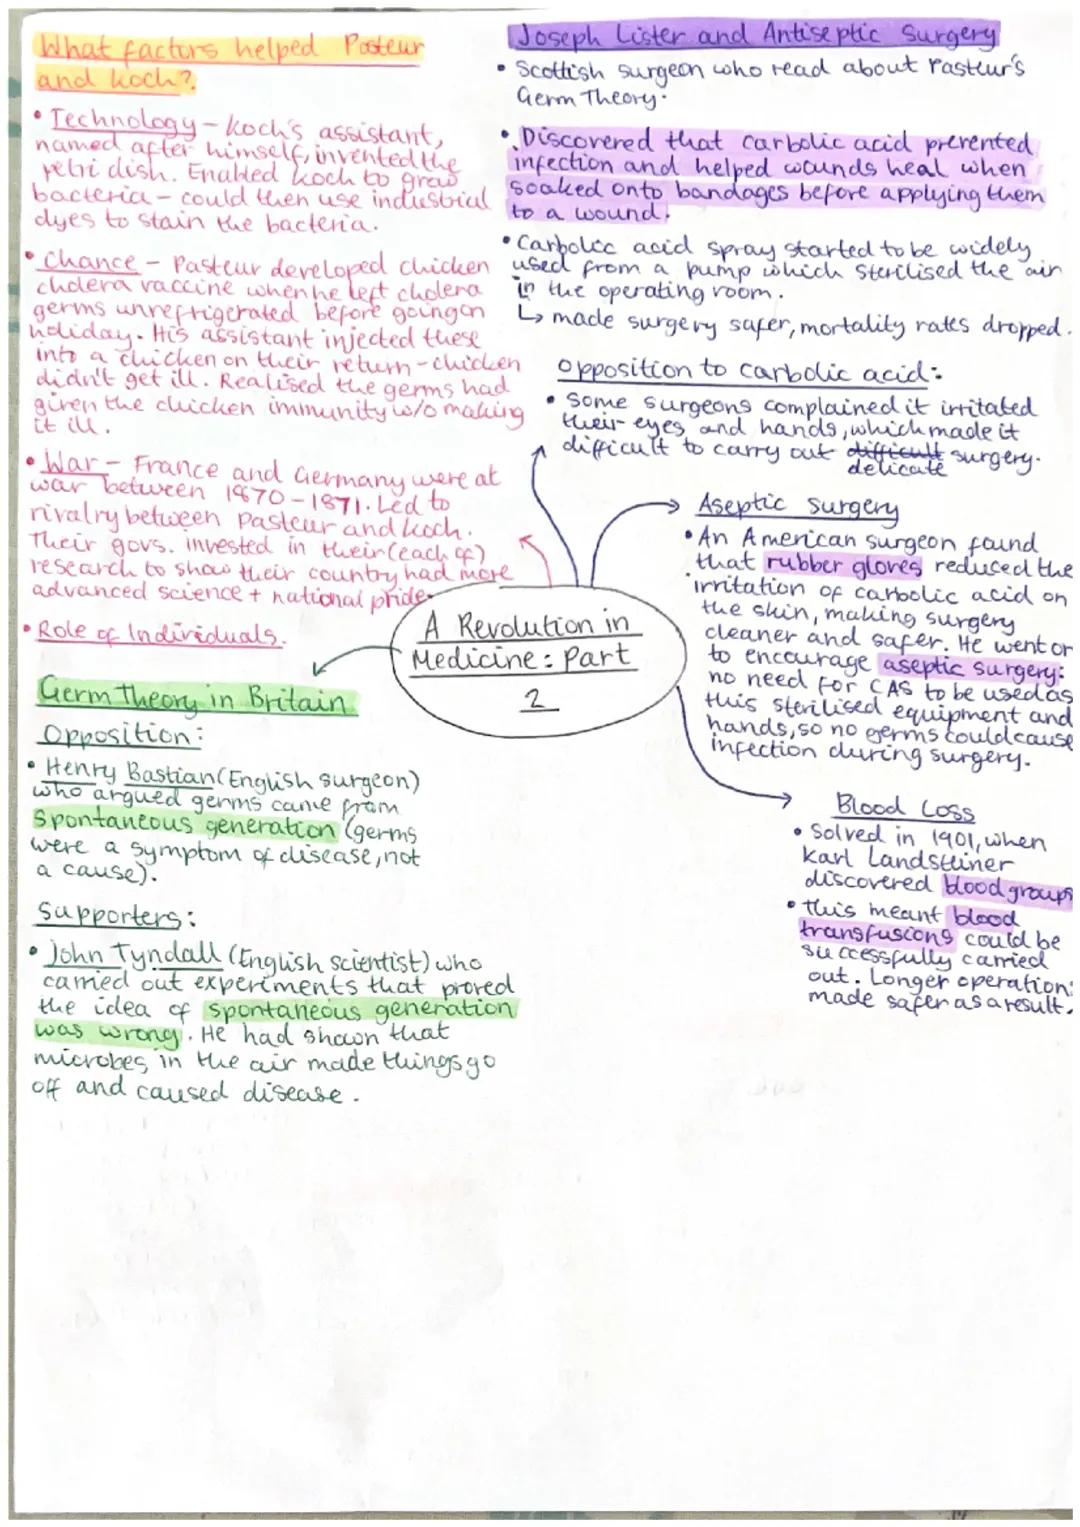 What factors helped Pasteur
and Koch?
• Technology - Koch's assistant,
named after himself, invented the
petri dish. Enabled Koch to grow
bacteria - could then use industrial
dyes to stain the bacteria.
• Chance - Pasteur developed chicken
cholera vaccine when he left cholera
germs unrefrigerated before going on
holiday. His assistant injected these
into a chicken on their return - chicken
didn't get ill. Realised the germs had
given the chicken immunity w/o making
it ill.
• War - France and Germany were at
war between 1870-1871. Led to
rivalry between Pasteur and Koch.
Their govs. invested in their (each of)
research to show their country had more
advanced science + national pride.
• Role of Individuals.
Germ theory in Britain
Opposition:
• Henry Bastian (English surgeon)
who argued germs came from
spontaneous generation (germs
were a symptom of disease, not
a cause).
Supporters:
• John Tyndall (English scientist) who
carried out experiments that proved
the idea of spontaneous generation
was wrong. He had shown that
microbes in the air made things go
off and caused disease.
A Revolution in
Medicine: Part
2
Joseph Lister and Antiseptic Surgery
• Scottish surgeon who read about Pasteur's
Germ Theory.
• Discovered that carbolic acid prevented
infection and helped wounds heal when
soaked onto bandages before applying them
to a wound.
• Carbolic acid spray started to be widely
used from a pump which sterilised the air
in the operating room.
↳ made surgery safer, mortality rates dropped.
Opposition to carbolic acid:
• Some surgeons complained it irritated
their eyes and hands, which made it
difficult to carry out difficult surgery.
delicate
Aseptic surgery
• An American surgeon found
that rubber gloves reduced the
irritation of carbolic acid on
the skin, making surgery
cleaner and safer. He went on
to encourage aseptic surgery:
no need for CAS to be used as
this sterilised equipment and
hands, so no germs could cause
infection during surgery.
Blood Loss
• Solved in 1901, when
Karl Landsteiner
discovered blood groups
• this meant blood
transfusions could be
successfully carried
out. Longer operation:
made safer as a result.